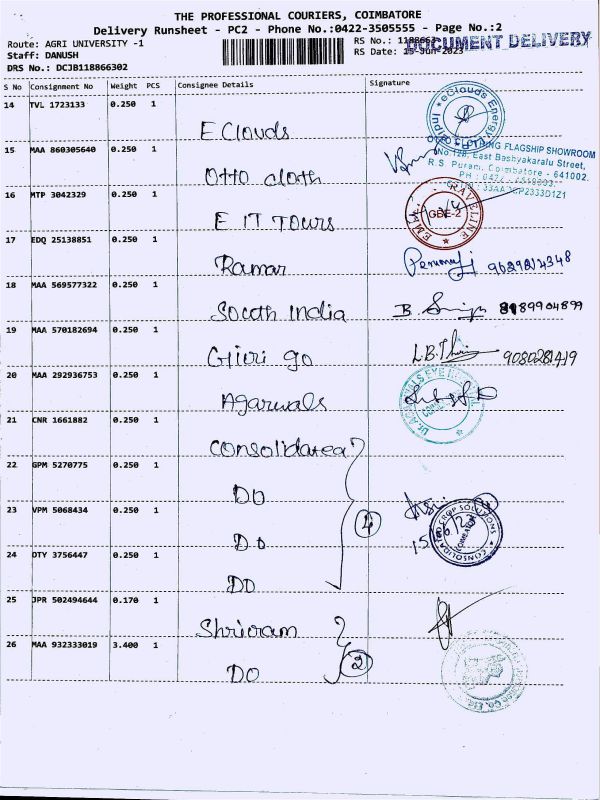 THE PROFESSIONAL COURIERS, COIMBATORE
Delivery Runsheet - PC2 - Phone No.:0422-3505555 - Page No.:2
Route: AGRI UNIVERSITY -1 RS No.:
DOCUMENT DELIVERY
Staff: DANUSH RS Date: 15-Jun-2023
DRS No.: DCJB118866302
S No Consignment No Weight PCS Consignee Details Signature
14 TVL 1723133 0.250 1 E Clouds
eClouds Energy
15 MAA 860305640 0.250 1 Otto cloth
OTTO CLOTHING FLAGSHIP SHOWROOM
No.128, East Bashyakaralu Street,
R.S Puram, Coimbatore - 641002.
16 MTP 3042329 0.250 1 E IT Tours
TRAVELINE
CBE-2
17 EDQ 25138851 0.250 1 Ramar
18 MAA 569577322 0.250 1 South India 8189904899
19 MAA 570182694 0.250 1 Giri go 9080281419
20 MAA 292936753 0.250 1 Agarwals
DR.AGARWALS EYE
21 CNR 1661882 0.250 1 Consolidatea
22 GPM 5270775 0.250 1 DO
23 VPM 5068434 0.250 1 Do
4
CROP SOLUTIONS
24 DTY 3756447 0.250 1 DO
25 JPR 502494644 0.170 1 Shriram
26 MAA 932333019 3.400 1 DO
2